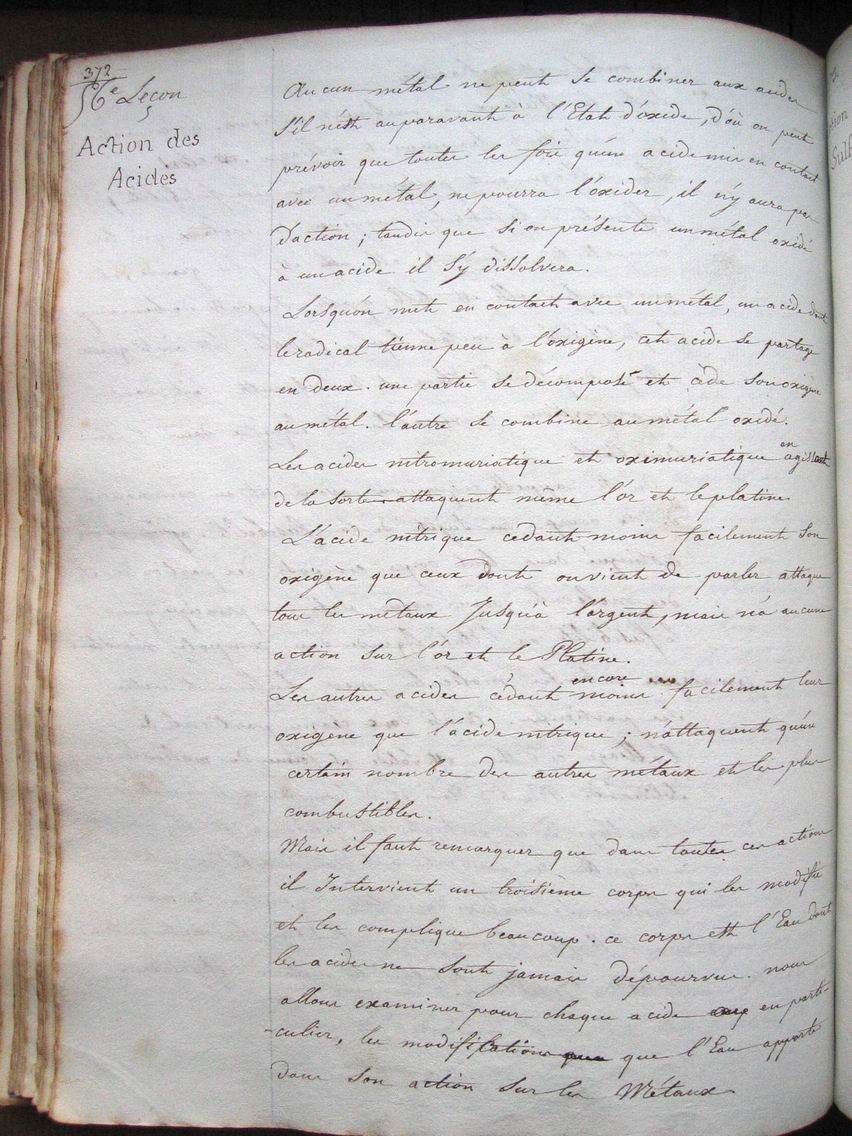 372
56e Leçon
Action des
Acides
Aucun métal ne peut se combiner aux acides
S'il n'est auparavant à l'Etat d'oxide, d'où on peut
prévoir que toutes les fois qu'un acide mis en contact
avec un métal, ne pourra l'oxider, il n'y aura pas
d'action ; tandis que si on présente un métal oxidé
à un acide il s'y dissolvera.
Lorsqu'on met en contact avec un métal, un acide dont
le radical tienne peu à l'oxigène, cet acide se partage
en deux. une partie se décompose et cède son oxigène
au métal. l'autre se combine au métal oxidé.
Les acides nitromuriatique et oximuriatique en agissant
de la sorte attaquent meme l'or et le platine
L'acide nitrique cedant moins facilement son
oxigene que ceux dont on vient de parler attaque
tous les métaux Jusqu'à l'argent, mais n'a aucune
action sur l'or et le Platine.
Les autres acides cédant encore moins facilement leur
oxigene que l'acide nitrique ; n'attaquent qu'un
certain nombre des autres métaux et les plus
combustibles.
Mais il faut remarquer que dans toutes ces actions
il Intervient un troisième corps qui les modifie
et les complique beaucoup. ce corps est l'Eau dont
les acides ne sont jamais dépourvus. nous
allons examiner pour chaque acide en parti-
-culier, les modifications que l'Eau apporte
dans son action sur les Métaux.